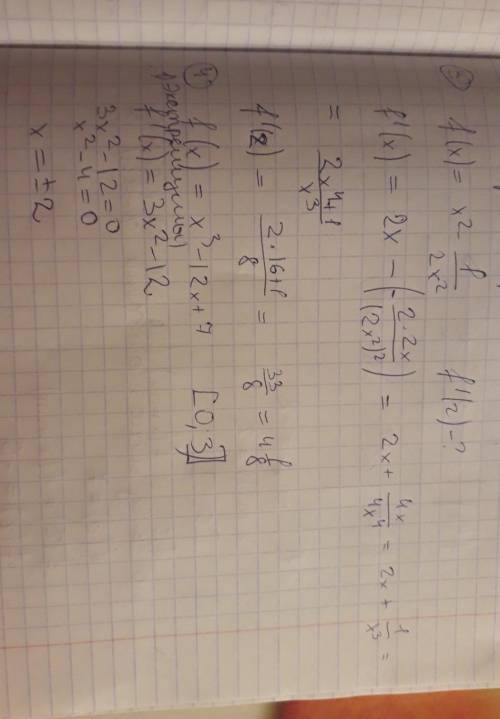 ③ f(x) = x² - 1/(2x²) f'(2) - ?
f'(x) = 2x - (- (2·2x)/((2x²)²)) = 2x + 4x/(4x⁴) = 2x + 1/x³ =
= (2x⁴+1)/x³
f'(2) = (2·16+1)/8 = 33/8 = 4 1/8
④ f(x) = x³ - 12x + 7 [0, 3]
(экстремумы)
f'(x) = 3x² - 12
3x² - 12 = 0
x² - 4 = 0
x = ±2